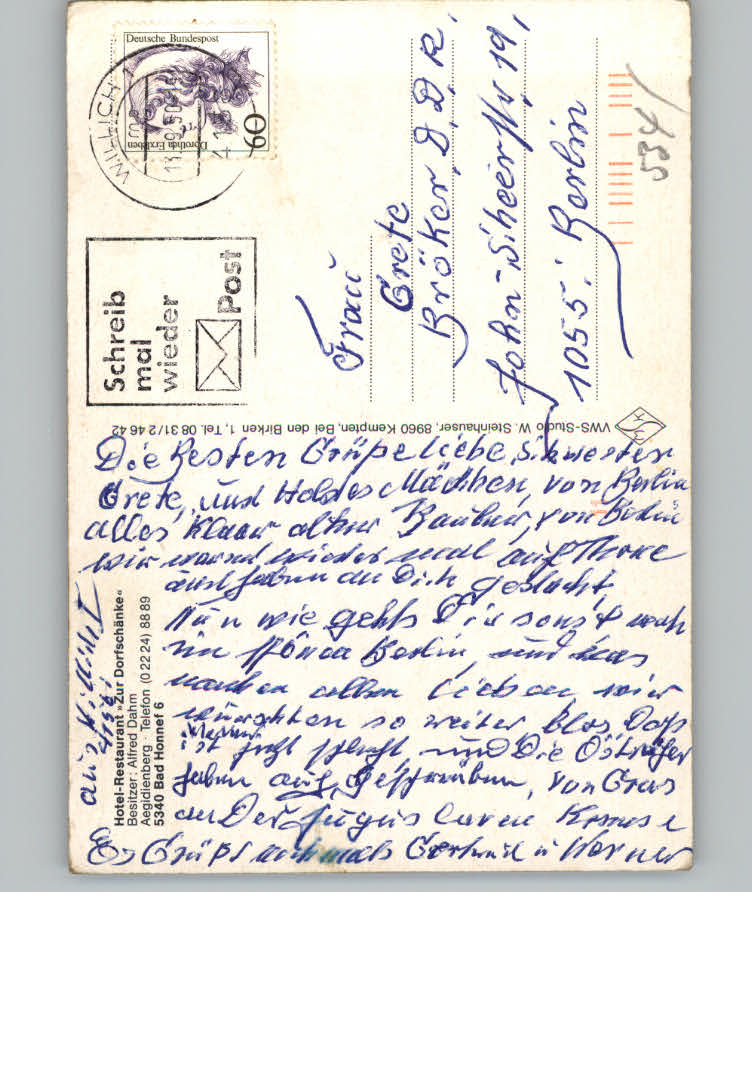 Deutsche Bundespost
Dorothea Erxleben
60
WILLICH
Schreib
mal
wieder
Post
Frau
Grete
Bröker, D.D.R,
John-Scheerstr 19,
1055. Berlin
534/
VWS-Studio W. Steinhauser, 8960 Kempten, Bei den Birken 1, Tel. 08 31/2 46 42
Die Besten Grüße liebe Schwester
Grete, und Mädchen, von Berlin
alles klaar alter von Berlin
wir waren wieder mal auf
und haben an Dich gedacht,
Nun wie gehts Dir sonst noch
im Berlin, und was
machen allen Lieben, wir
so weiter blos Das
ist jezt und Die
haben auf, von
an Der
Es Grüßt nochmals Gertrud u Werner
aus Willich I
4156!
Hotel-Restaurant »Zur Dorfschänke«
Besitzer: Alfred Dahm
Aegidienberg · Telefon (0 22 24) 88 89
5340 Bad Honnef 6